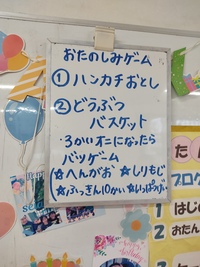 おたのしみゲーム
①ハンカチおとし
②どうぶつ
バスケット
・3かいオニになったら
バツゲーム
☆へんがお ☆しりもじ
☆ふっきん10かい ☆しっぺ
たん
プログ
1 はじめ
2 おたん
3